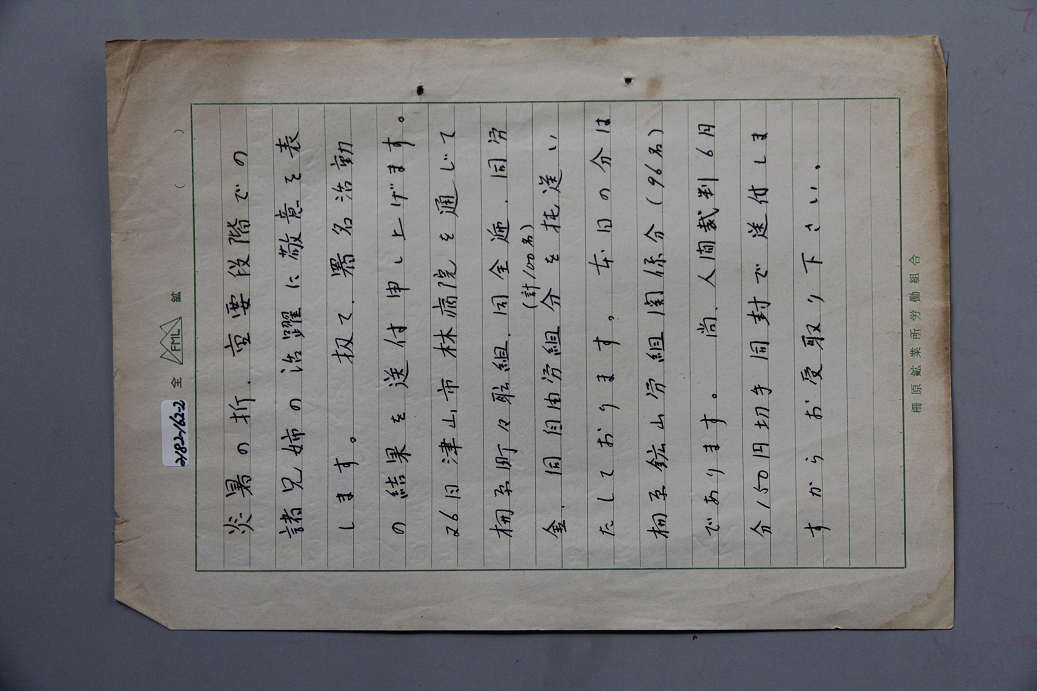 全 FML 鉱
2182-162-2
( )
炎暑の折、重要段階での
諸兄姉の活躍に敬意を表
します。 扨て、署名活動
の結果を送付申し上げます。
26日津山市林病院を通じて
柵原町々職組、同全逓、同労
金、同自由労組分を托送い
(計100名)
たしております。本日の分は
柵原鉱山労組関係分(96名)
であります。 尚、人間裁判6月
分150円切手同封で送付しま
すからお受取り下さい。
柵原鉱業所労働組合